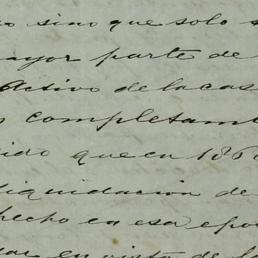 o sino que solo s
ayor parte de
Activo de la cas
s completam
ido que en 186
liquidacion de
hecho en esa epo
en vista de l